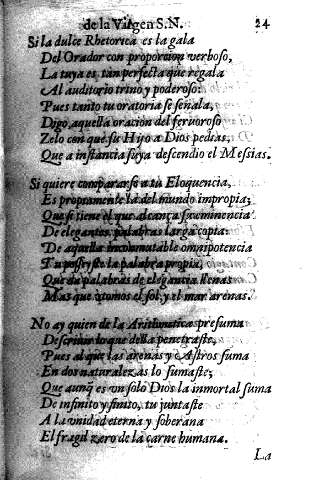 de la Virgen S.N. 24
Si la dulce Rhetorica es la gala
Del Orador con proporcion verboso,
La tuya es tan perfecta que regala
Al auditorio trino y poderoso:
Pues tanto tu oratoria se señala,
Digo, aquella oracion del fervoroso
Zelo con que su Hijo a Dios pedias,
Que a instancia suya descendio el Messias.
Si quiere compararse a tu Eloquencia,
Es propriamente la del mundo impropia;
Que si tiene el que alcança su eminencia
De elegantes palabras larga copia:
De aquella incomutable omnipotencia
Tu la palabra propia,
Que da palabras de elegancia llenas
Mas que atomos el sol, y el mar arenas.
No ay quien de la Arithmetica presuma
Descrivir lo que della penetraste,
Pues al que las arenas y Astros suma
En dos naturalezas lo sumaste;
Que aunq̃ es un solo Dios la inmortal suma
De infinito y finito, tu juntaste
A la unidad eterna y soberana
El fragil zero de la carne humana.
La